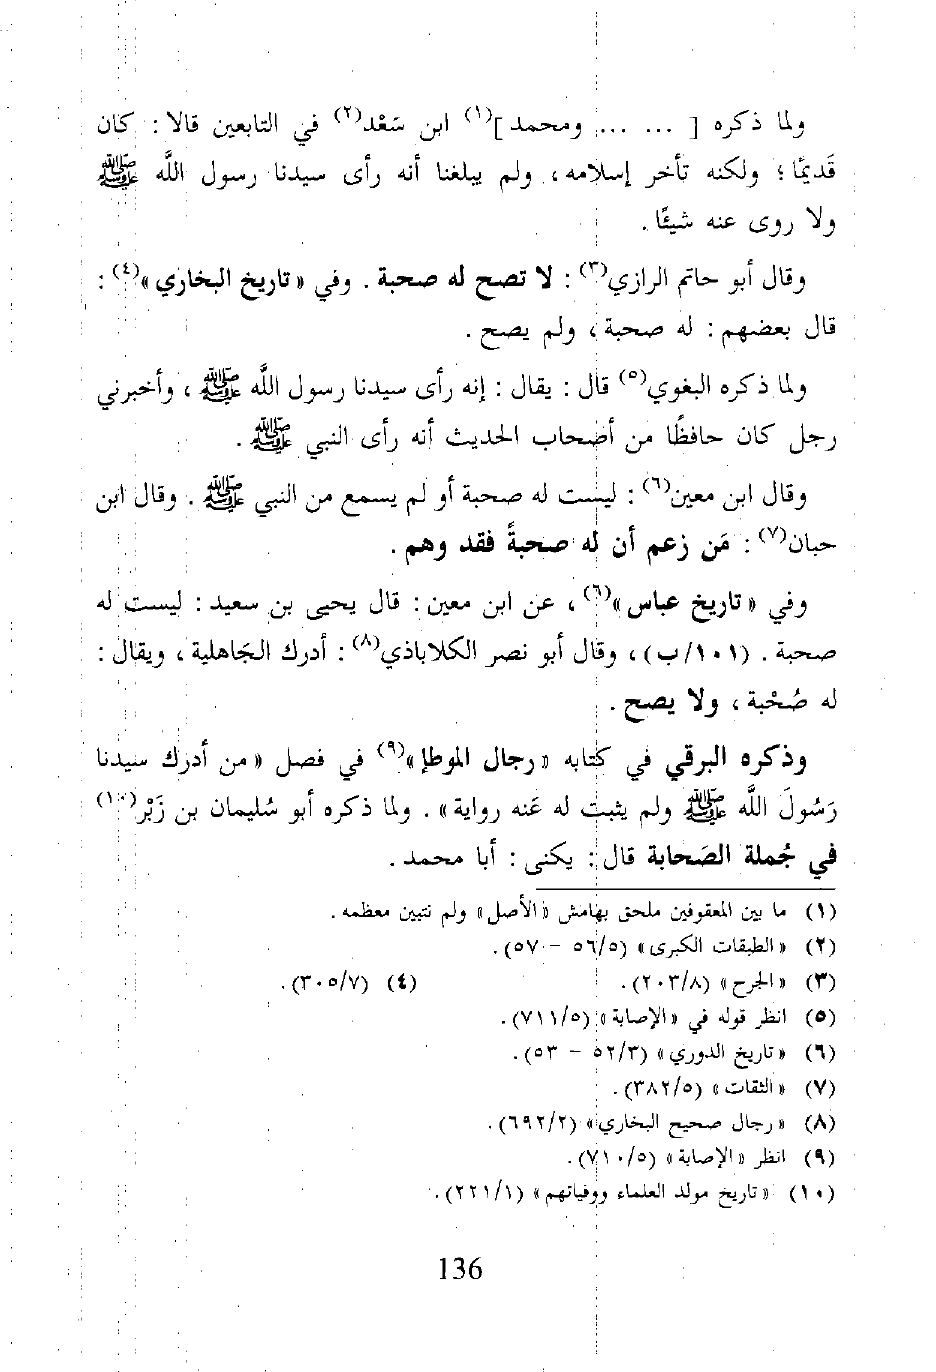 ولما ذكره [ ... ... ومحمد ](١) ابن سَعْد(٢) في التابعين قالا : كان
قَديمًا ؛ ولكنه تأخر إسلامه ، ولم يبلغنا أنه رأى سيدنا رسول اللَّه ﷺ
ولا روى عنه شيئًا .
وقال أبو حاتم الرازي(٣) : لا تصح له صحبة . وفي « تاريخ البخاري »(٤) :
قال بعضهم : له صحبة ، ولم يصح .
ولما ذكره البغوي(٥) قال : يقال : إنه رأى سيدنا رسول اللَّه ﷺ ، وأخبرني
رجل كان حافظًا من أصحاب الحديث أنه رأى النبي ﷺ .
وقال ابن معين(٦) : ليست له صحبة أو لم يسمع من النبي ﷺ . وقال ابن
حبان(٧) : مَن زعم أن له صحبةً فقد وهم .
وفي « تاريخ عباس »(٦) ، عن ابن معين : قال يحيى بن سعيد : ليست له
صحبة . (١٠١/ب) ، وقال أبو نصر الكلاباذي(٨) : أدرك الجاهلية ، ويقال :
له صُحْبة ، ولا يصح .
وذكره البرقي في كتابه « رجال الموطإ »(٩) في فصل « من أدرك سيدنا
رَسُولَ اللَّه ﷺ ولم يثبت له عَنه رواية » . ولما ذكره أبو سُليمان بن زَبْر(١٠)
في جُملة الصَحابة قال : يكنى : أبا محمد .
(١) ما بين المعقوفين ملحق بهامش « الأصل » ولم نتبين معظمه .
(٢) « الطبقات الكبرى » (٥٦/٥ – ٥٧) .
(٣) « الجرح » (٢٠٣/٨) . (٤) (٣٠٥/٧) .
(٥) انظر قوله في « الإصابة » (٧١١/٥) .
(٦) « تاريخ الدوري » (٥٢/٣ – ٥٣) .
(٧) « الثقات » (٣٨٢/٥) .
(٨) « رجال صحيح البخاري » (٦٩٢/٢) .
(٩) انظر « الإصابة » (٧١٠/٥) .
(١٠) « تاريخ مولد العلماء ووفياتهم » (٢٢١/١) .
136